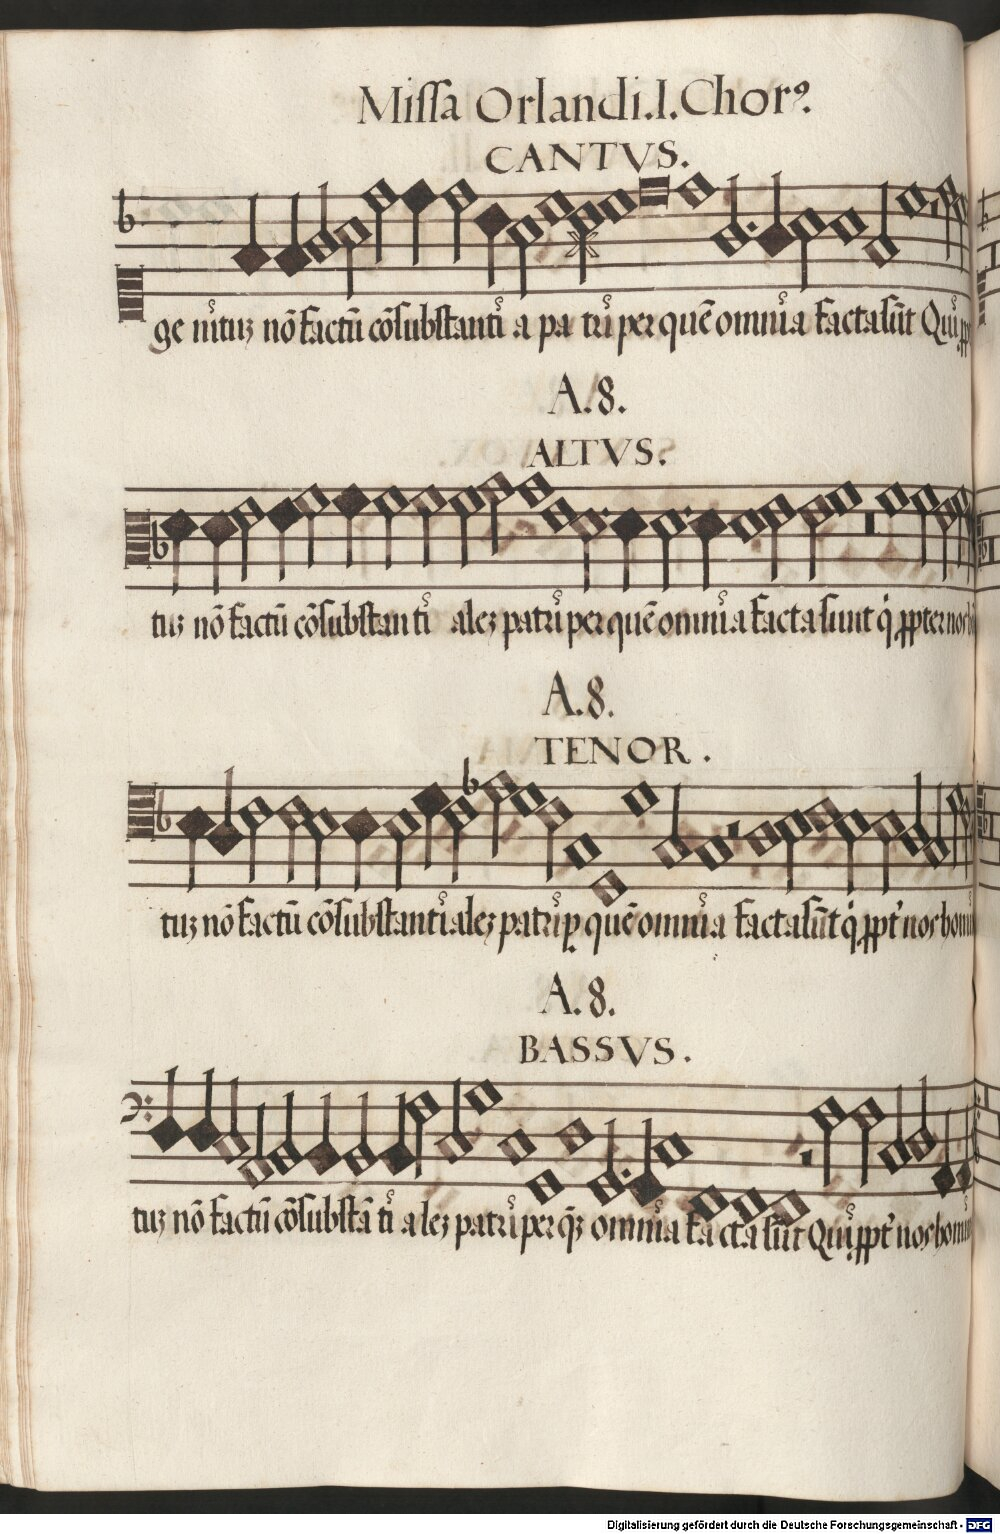 Missa Orlandi. I. Chorꝰ.
CANTVS.
ge nituꝫ nõ factũ cõsubstanti a pa tri per quẽ omnia facta sũt Qui ꝓp
A. 8.
ALTVS.
tuꝫ nõ factũ cõsubstan ti alez patri per quẽ omnia facta sunt q̇ ꝓpter nos
A. 8.
TENOR.
tuꝫ nõ factũ cõsubstanti alez patri ꝑ quẽ omnia facta sũt q̇ ꝓpt' nos homi
A. 8.
BASSVS.
tuꝫ nõ factũ cõsubstã ti alez patri per q̃ꝫ omnia facta sũt Qui ꝓpt' nos homi
Digitalisierung gefördert durch die Deutsche Forschungsgemeinschaft - DFG